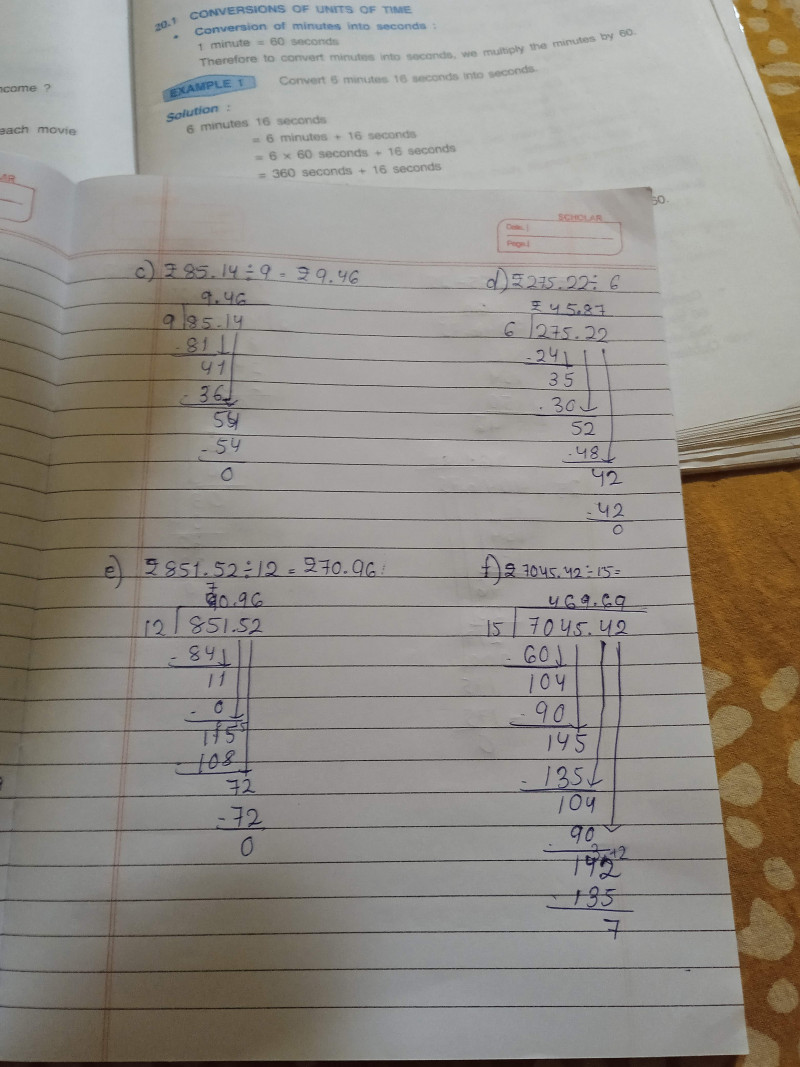 20.1 CONVERSIONS OF UNITS OF TIME
• Conversion of minutes into seconds :
1 minute = 60 seconds
Therefore to convert minutes into seconds, we multiply the minutes by 60.
EXAMPLE 1 Convert 6 minutes 16 seconds into seconds.
Solution :
6 minutes 16 seconds
= 6 minutes + 16 seconds
= 6 × 60 seconds + 16 seconds
= 360 seconds + 16 seconds
come ?
each movie
SCHOLAR
Date.
Page.
c) ₹85.14÷9 = ₹9.46
9.46
9 85.14
-81
41
-36
54
-54
0
d) ₹275.22÷6
₹45.87
6 275.22
-24
35
-30
52
-48
42
-42
0
e) ₹851.52÷12 = ₹70.96
70.96
12 851.52
-84
11
-0
115
-108
72
-72
0
f) ₹7045.42÷15=
469.69
15 7045.42
-60
104
-90
145
-135
104
-90
142
-135
7